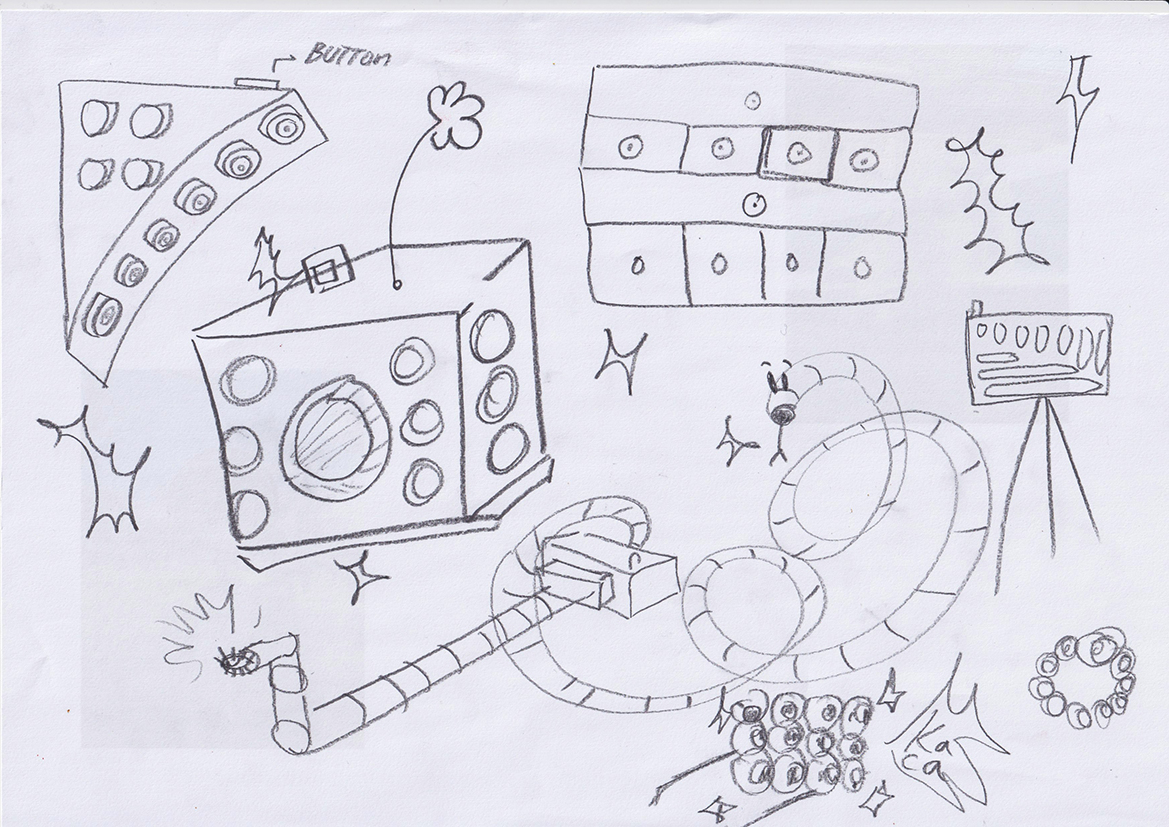 BUTTON
Ka
Ca